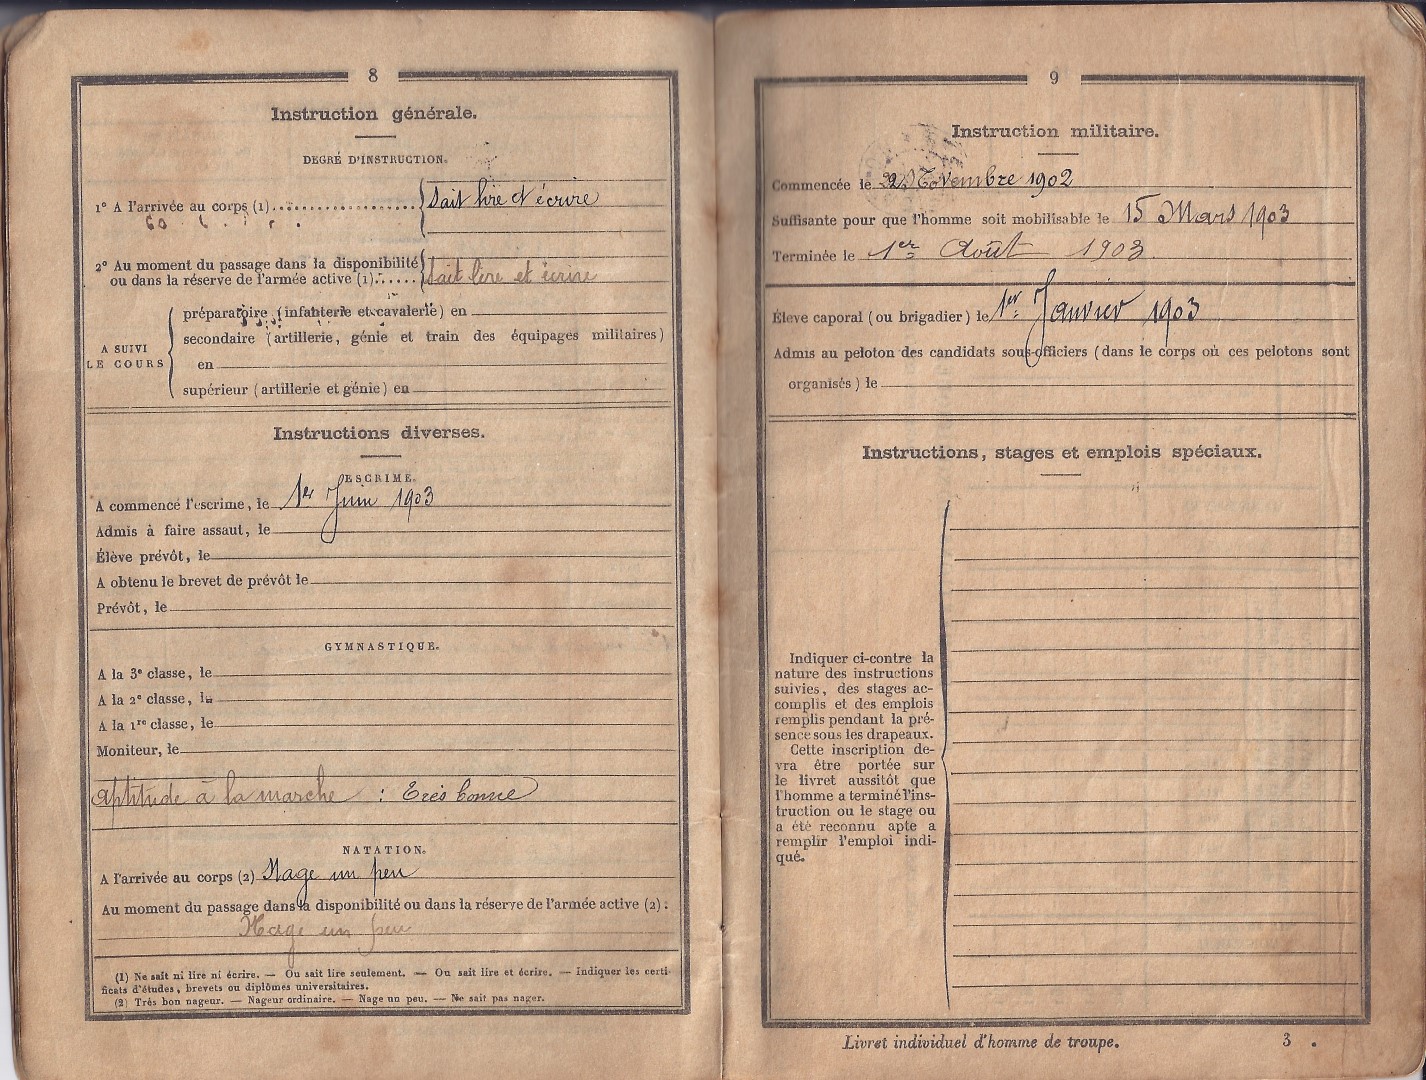 8
Instruction générale.
DEGRÉ D'INSTRUCTION.
1° A l'arrivée au corps (1) .................... Sait lire et écrire
2° Au moment du passage dans la disponibilité
ou dans la réserve de l'armée active (1)...... Sait lire et écrire
A SUIVI
LE COURS
préparatoire (infanterie et cavalerie) en
secondaire (artillerie, génie et train des équipages militaires)
en
supérieur (artillerie et génie) en
Instructions diverses.
ESCRIME.
A commencé l'escrime, le 1er Juin 1903
Admis à faire assaut, le
Élève prévôt, le
A obtenu le brevet de prévôt le
Prévôt, le
GYMNASTIQUE.
A la 3e classe, le
A la 2e classe, le
A la 1re classe, le
Moniteur, le
Aptitude à la marche : Très bonne
NATATION.
A l'arrivée au corps (2) Nage un peu
Au moment du passage dans la disponibilité ou dans la réserve de l'armée active (2) :
Nage un peu
(1) Ne sait ni lire ni écrire. — Ou sait lire seulement. — Ou sait lire et écrire. — Indiquer les certi-
ficats d'études, brevets ou diplômes universitaires.
(2) Très bon nageur. — Nageur ordinaire. — Nage un peu. — Ne sait pas nager.
9
Instruction militaire.
Commencée le Novembre 1902
Suffisante pour que l'homme soit mobilisable le 15 Mars 1903
Terminée le 1er Août 1903
Élève caporal (ou brigadier) le 1er Janvier 1903
Admis au peloton des candidats sous-officiers (dans le corps où ces pelotons sont
organisés) le
Instructions, stages et emplois spéciaux.
Indiquer ci-contre la
nature des instructions
suivies, des stages ac-
complis et des emplois
remplis pendant la pré-
sence sous les drapeaux.
Cette inscription de-
vra être portée sur
le livret aussitôt que
l'homme a terminé l'ins-
truction ou le stage ou
a été reconnu apte a
remplir l'emploi indi-
qué.
Livret individuel d'homme de troupe. 3 .